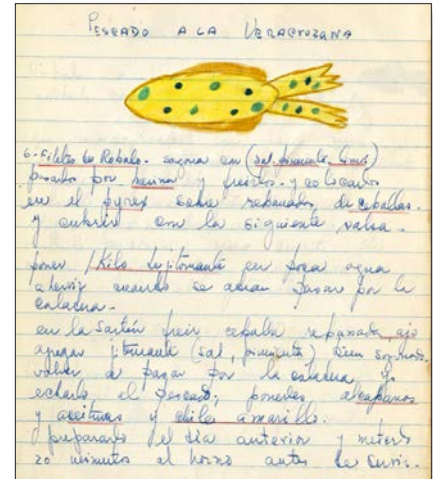 PESCADO A LA VERACRUZANA
6- filetes de Robalo. sazonar con (sal, pimienta, limón)
pasarlos por harina y freirlos. y colocarlos
en el pyrex sobre rebanadas de cebollas.
y cubrir con la siguiente salsa.
poner 1 Kilo de jitomante en poca agua
a hervir cuando se abran pasar por la
coladera.
en la sartén freir cebolla rebanada, ajo
agregar jitomante (sal, pimienta) bien sazonado.
volver a pasar por la coladera y
echarlo al pescado; ponerles alcaparras
y aceitunas y chile amarillo.
prepararlo el día anterior y meterlo
20 minutos al horno antes de servir.